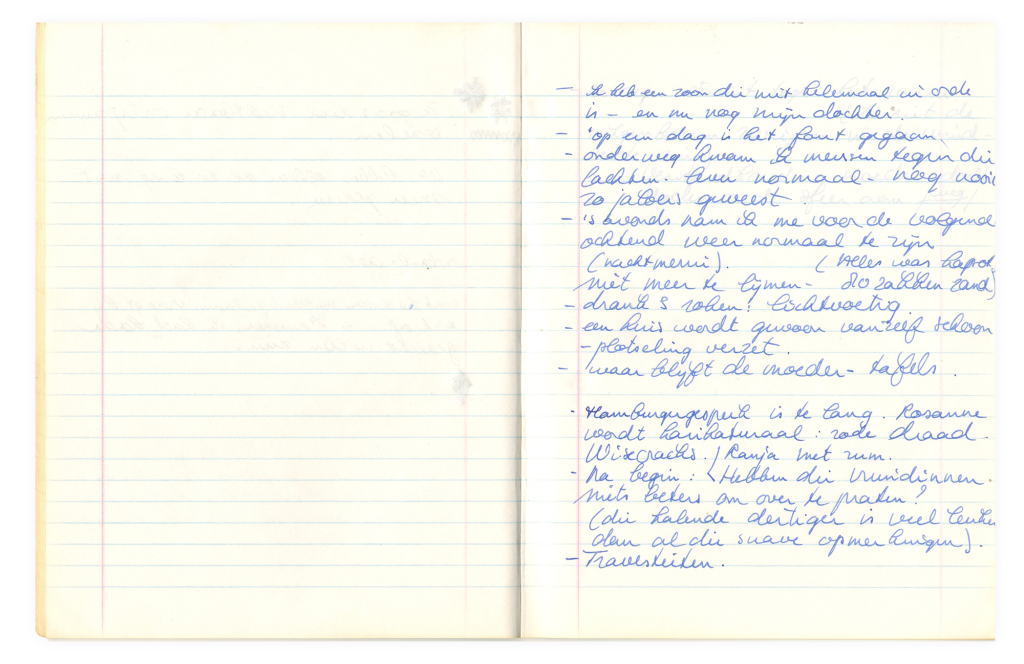 - Ik heb een zoon die niet helemaal in orde
is - en nu nog mijn dochter.
- 'op een dag is het fout gegaan.
- onderweg kwam ik mensen tegen die
lachten. Heel normaal - nog nooit
zo jaloers geweest
- 's avonds nam ik me voor de volgende
ochtend weer normaal te zijn
(nachtmerrie). (Alles was kapot
niet meer te lijmen - 80 zakken zand)
- drank & roken! lichtvoetig
- een huis wordt gewoon vanzelf schoon
- plotseling verzet.
- waar blijft de moeder - tafels.
- Hamburgergesprek is te lang. Rosanne
wordt karikaturaal: rode draad.
Wisecracks. / Ranja met rum.
- Na begin: Hebben die vriendinnen
niets beters om over te praten?
(die kalende dertiger is veel leuker
dan al die suave opmerkingen).
- Travestieten.